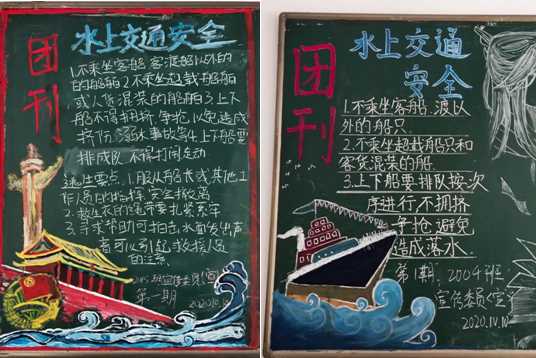 团刊
水上交通安全
1.不乘坐客船、客渡船以外的
的船舶2.不乘坐超载船舶
或人货混装的船舶3.上下
船不得拥挤、争抢以免造成
挤伤、落水事故等4.上下船要
排成队 不得打闹走动
逃生要点:1.服从船长或其他工
作人员的指挥,安全撤离
2.救生衣的绳带要扎紧系牢
3.寻求帮助可拍击水面或出声
者可以引起救援人员
的注意.
第一期
团刊
水上交通
安全
1.不乘坐客船、渡以
外的船只.
2.不乘坐超载船只和
客货混装的船.
3.上下船要排队按次
序进行不拥挤
争抢避免
造成落水.
第1期: 2004班
宣传委员(宣)
2020.IV.10